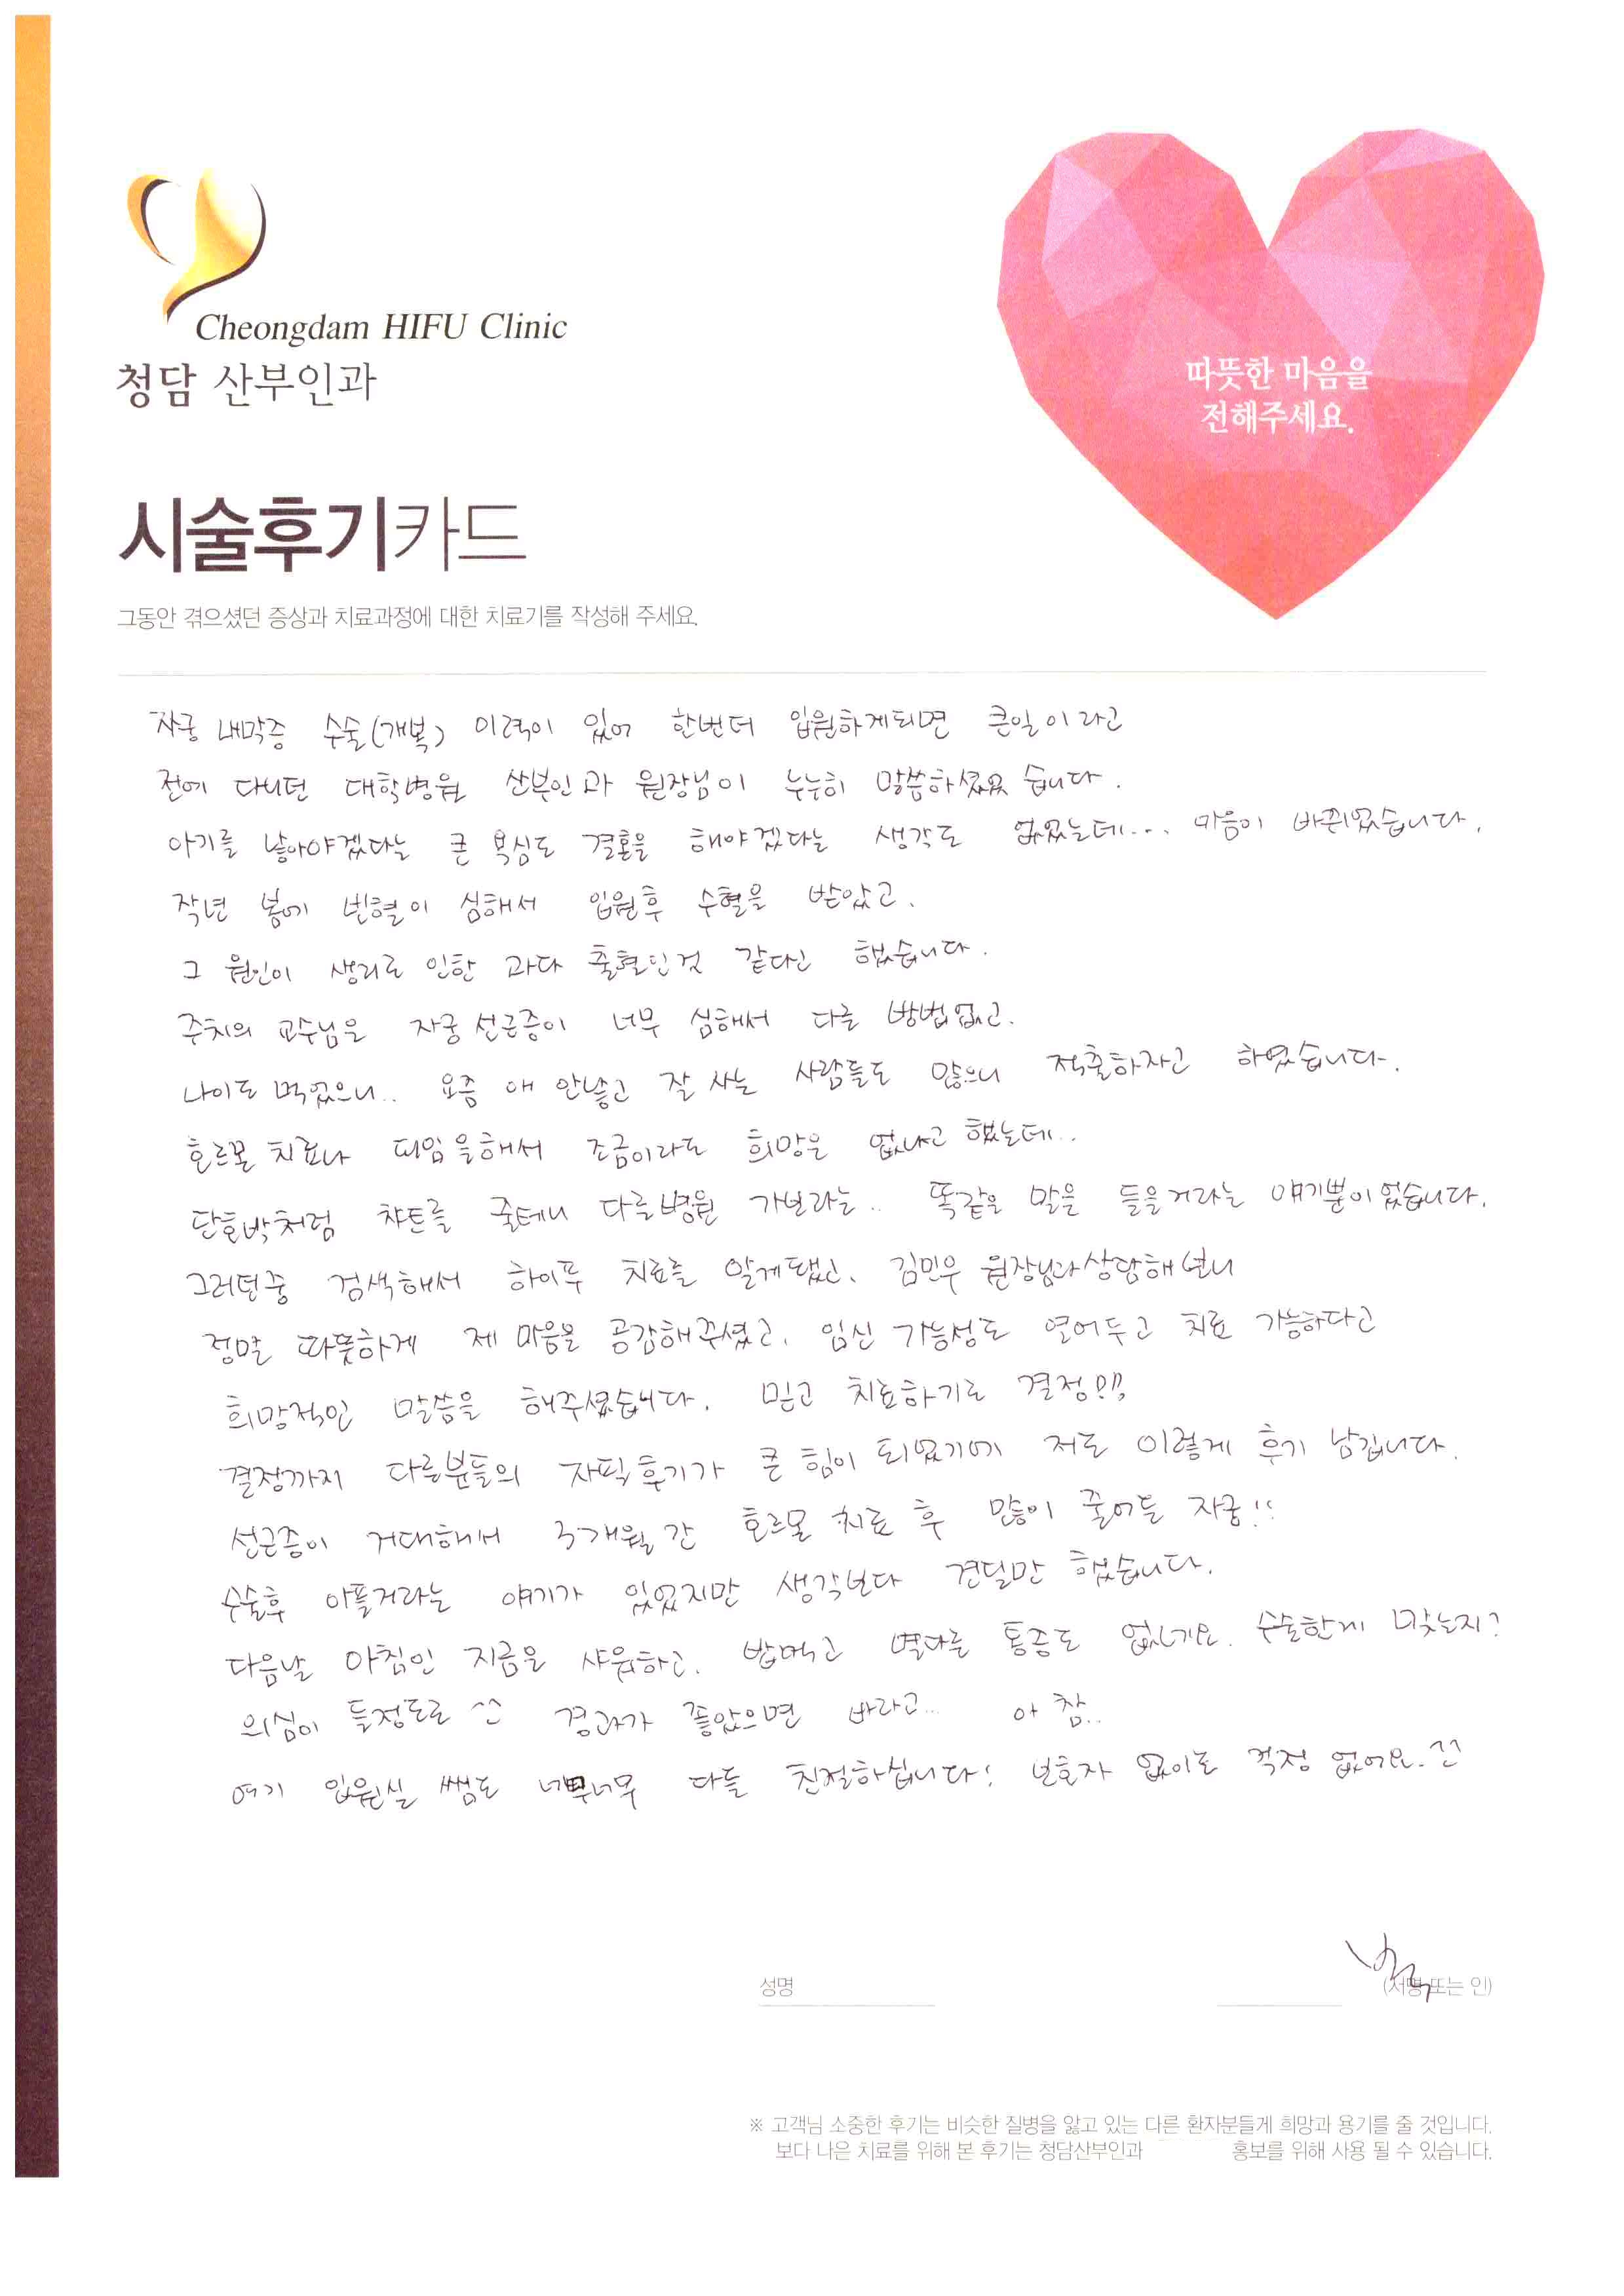 Cheongdam HIFU Clinic
청담 산부인과
따뜻한 마음을
전해주세요.
시술후기카드
그동안 겪으셨던 증상과 치료과정에 대한 치료기를 작성해 주세요.
자궁 내막증 수술(개복) 이력이 있어 한번더 입원하게되면 큰일이라고
전에 다니던 대학병원 산부인과 원장님이 누누히 말씀하셨었습니다.
아기를 낳아야겠다는 큰 욕심도 결혼을 해야겠다는 생각도 없었는데... 마음이 바뀌었습니다.
작년 봄에 빈혈이 심해서 입원후 수혈을 받았고.
그 원인이 생리로 인한 과다 출혈인것 같다고 했습니다.
주치의 교수님은 자궁선근증이 너무 심해서 다른 방법없고.
나이도 먹었으니.. 요즘 애 안낳고 잘 사는 사람들도 많으니 적출하자고 하였습니다.
호르몬 치료나 피임을해서 조금이라도 희망은 없냐고 했는데..
단호박처럼 챠트를 줄테니 다른병원 가보라는.. 똑같은 말을 들을거라는 얘기뿐이었습니다.
그러던중 검색해서 하이푸 치료를 알게됐고. 김민우 원장님과 상담해보니
정말 따뜻하게 제 마음을 공감해주셨고. 임신 가능성도 열어두고 치료 가능하다고
희망적인 말씀을 해주셨습니다. 믿고 치료하기로 결정!!!
결정까지 다른분들의 자필후기가 큰 힘이 되었기에 저도 이렇게 후기 남깁니다.
선근증이 거대해서 3개월간 호르몬 치료 후 많이 줄어든 자궁!!
수술후 아플거라는 얘기가 있었지만 생각보다 견딜만 했습니다.
다음날 아침인 지금은 샤워하고. 밥먹고 별다른 통증도 없네요. 수술한게 맞는지?
의심이 들정도로 ^^ 경과가 좋았으면 바라고... 아 참..
여기 입원실 쌤도 너무너무 다들 친절하십니다! 보호자 없이도 걱정 없어요.^^
성명
(서명 또는 인)
※ 고객님 소중한 후기는 비슷한 질병을 앓고 있는 다른 환자분들게 희망과 용기를 줄 것입니다.
보다 나은 치료를 위해 본 후기는 청담산부인과 홍보를 위해 사용 될 수 있습니다.